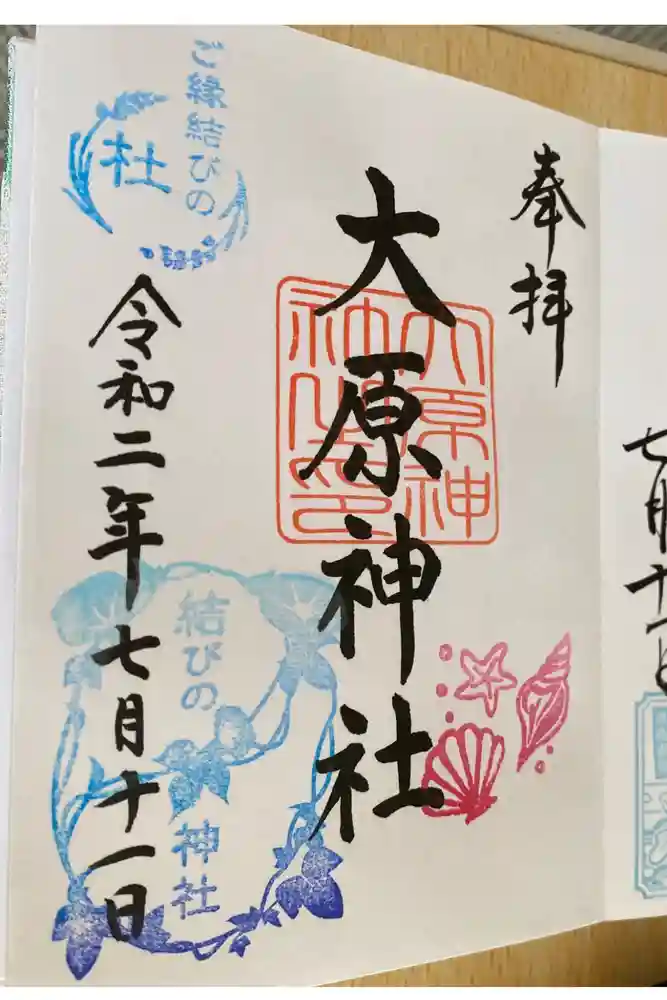 奉拝
大原神社
大原神
社之印
ご縁結びの
社
令和二年七月十一日
結びの
神社
七月十一日